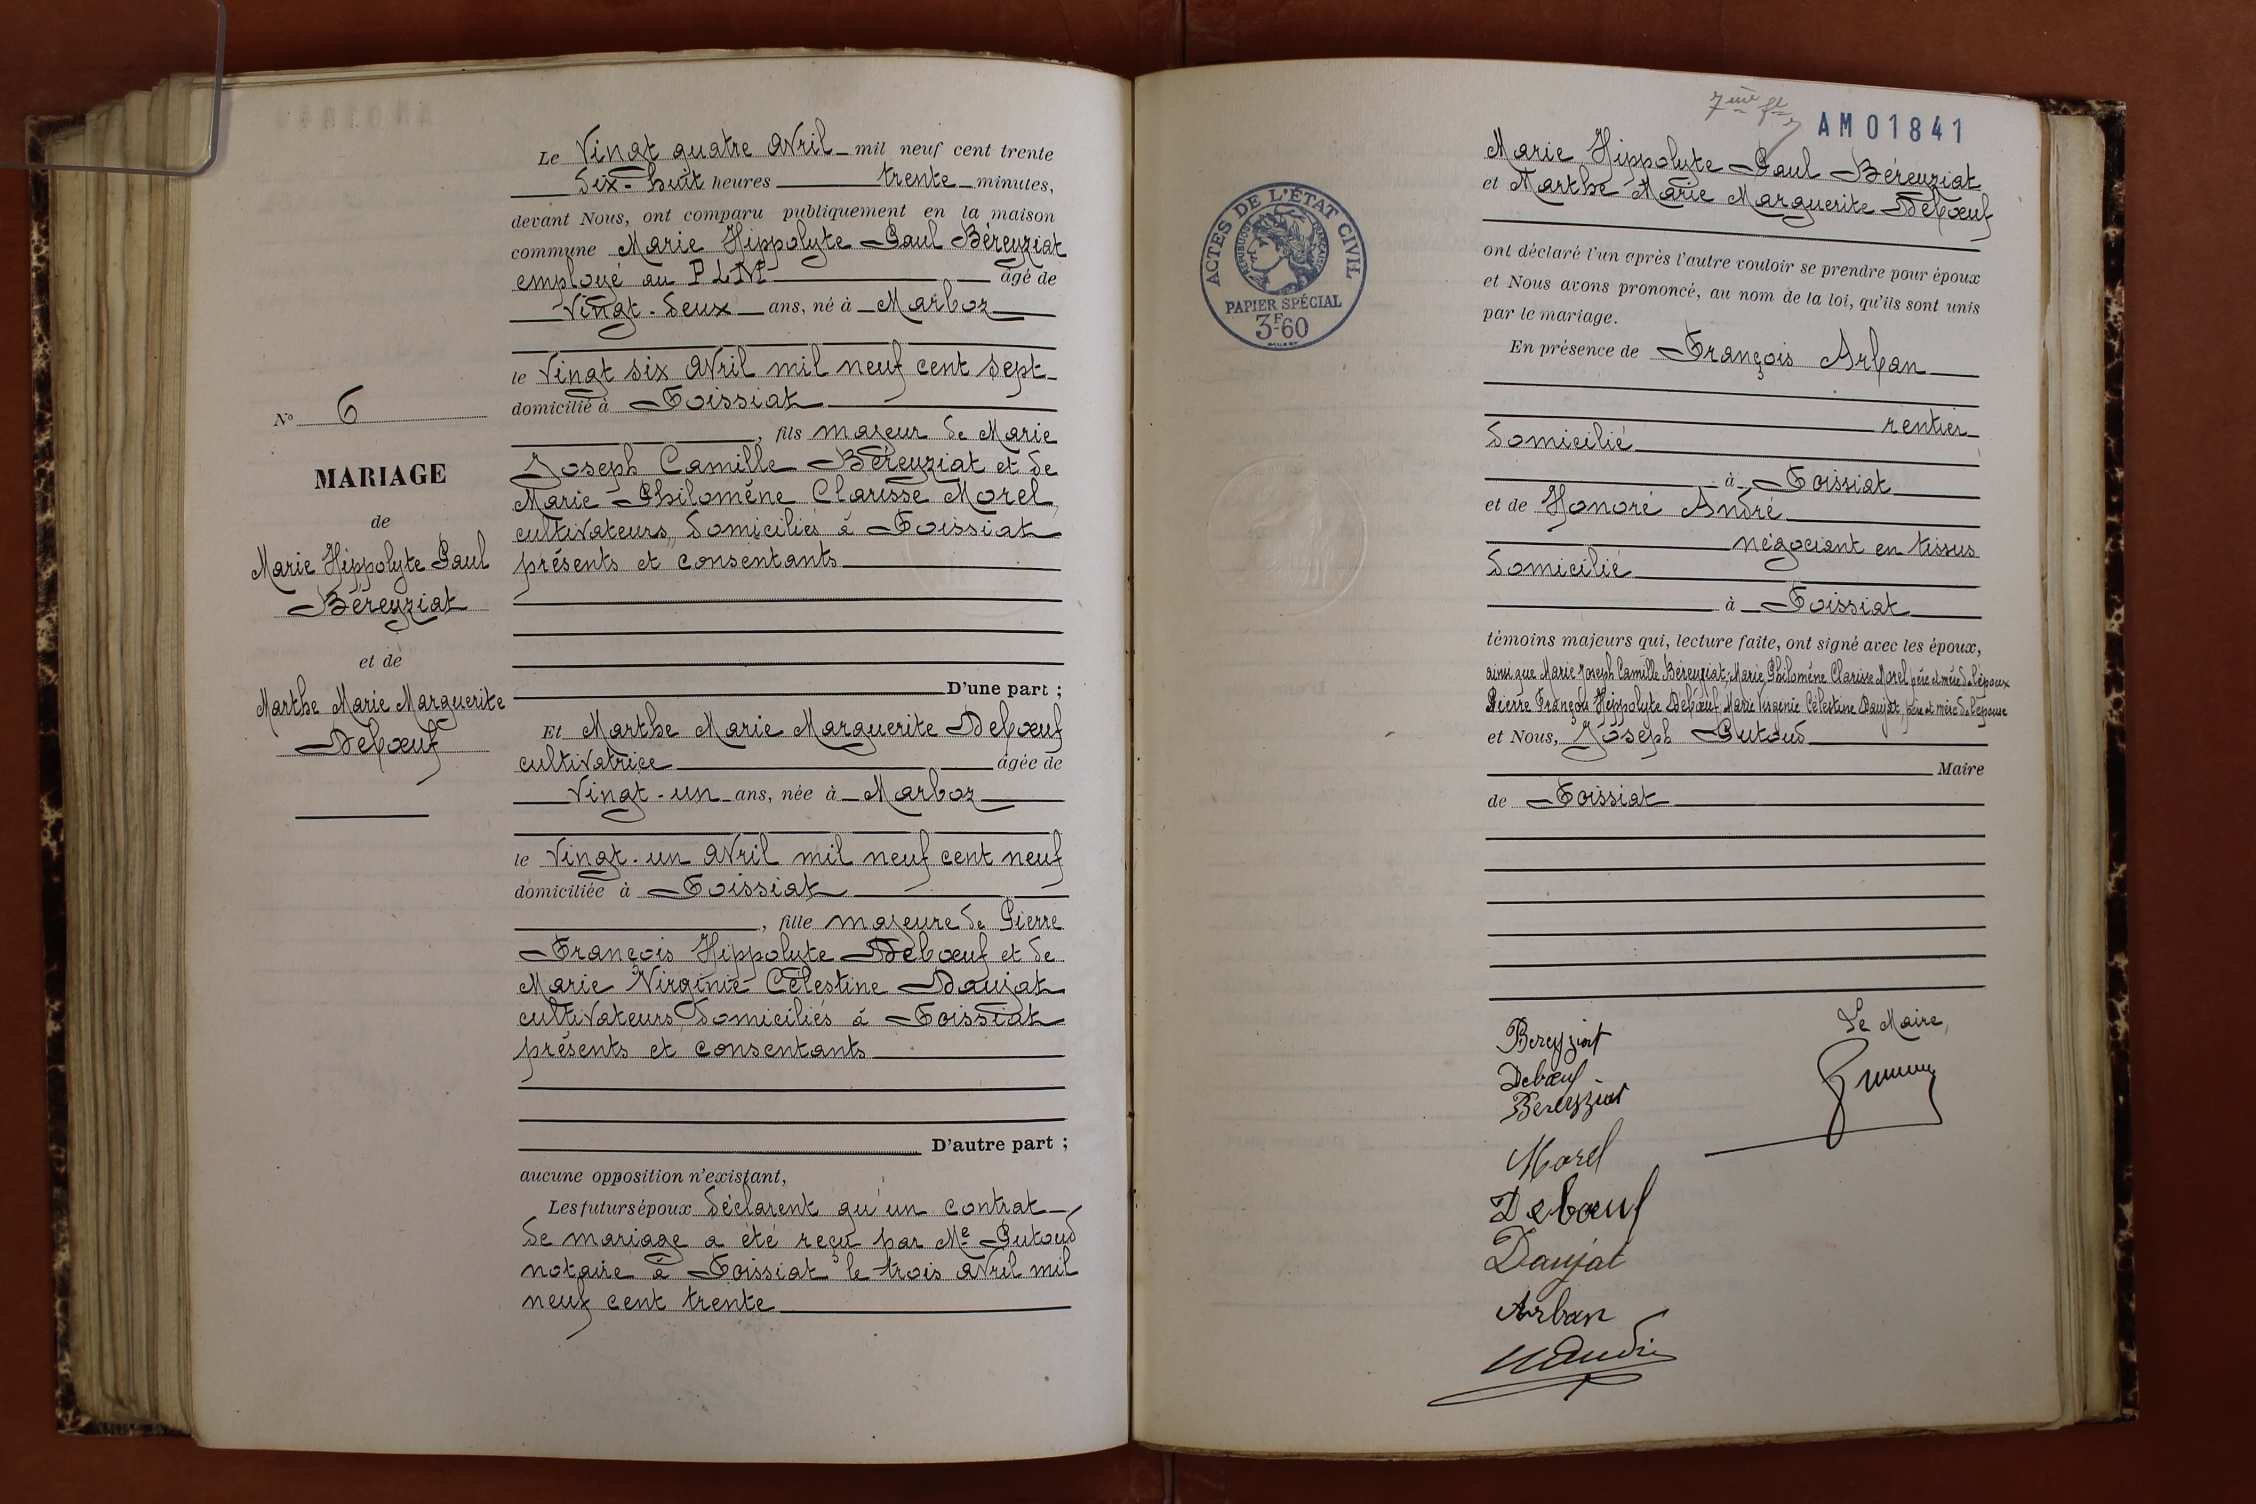 Le Vingt quatre Avril mil neuf cent trente
dix-huit heures trente minutes,
devant Nous, ont comparu publiquement en la maison
commune Marie Hippolyte Paul Béreyziat
employé au P L M âgé de
Vingt-deux ans, né à Marboz
le Vingt six Avril mil neuf cent sept
domicilié à Foissiat
, fils majeur de Marie
Joseph Camille Béreyziat et de
Marie Philomène Clarisse Morel,
cultivateurs, domiciliés à Foissiat
présents et consentants
D'une part ;
Et Marthe Marie Marguerite Debœuf
cultivatrice âgée de
Vingt-un ans, née à Marboz
le Vingt-un Avril mil neuf cent neuf
domiciliée à Foissiat
, fille majeure de Pierre
François Hippolyte Debœuf et de
Marie Virginie Célestine Daujat
cultivateurs, domiciliés à Foissiat
présents et consentants
D'autre part ;
aucune opposition n'existant,
Les futurs époux déclarent qu'un contrat
de mariage a été reçu par Me Putoud
notaire à Foissiat le trois Avril mil
neuf cent trente
No 6
MARIAGE
de
Marie Hippolyte Paul
Béreyziat
et de
Marthe Marie Marguerite
Debœuf
7ème
AM01841
ACTES DE L'ÉTAT CIVIL
RÉPUBLIQUE FRANÇAISE
PAPIER SPÉCIAL
3F60
Marie Hippolyte Paul Béreyziat
et Marthe Marie Marguerite Debœuf
ont déclaré l'un après l'autre vouloir se prendre pour époux
et Nous avons prononcé, au nom de la loi, qu'ils sont unis
par le mariage.
En présence de François Arban
rentier
domicilié
à Foissiat
et de Honoré André
négociant en tissus
domicilié
à Foissiat
témoins majeurs qui, lecture faite, ont signé avec les époux,
ainsi que Marie Joseph Camille Béreyziat, Marie Philomène Clarisse Morel père et mère de l'époux
Pierre François Hippolyte Debœuf Marie Virginie Célestine Daujat, père et mère de l'épouse
et Nous, Joseph Putoud
Maire
de Foissiat
Bereyziat
Debœuf
Bereyziat
Morel
Debœuf
Daujat
Arban
Le Maire,